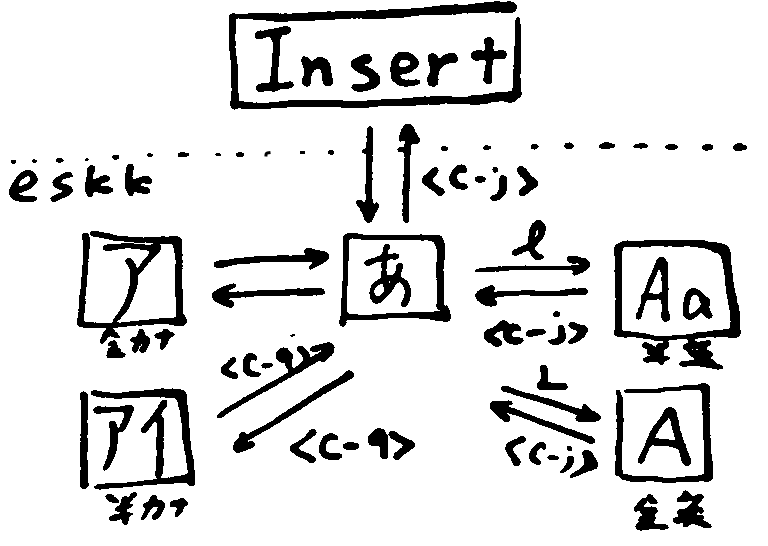 Insert
<C-j>
eskk
ア
全カナ
あ
l
<C-j>
Aa
半英
<C-q>
<C-q>
アイ
半カナ
L
<C-j>
A
全英